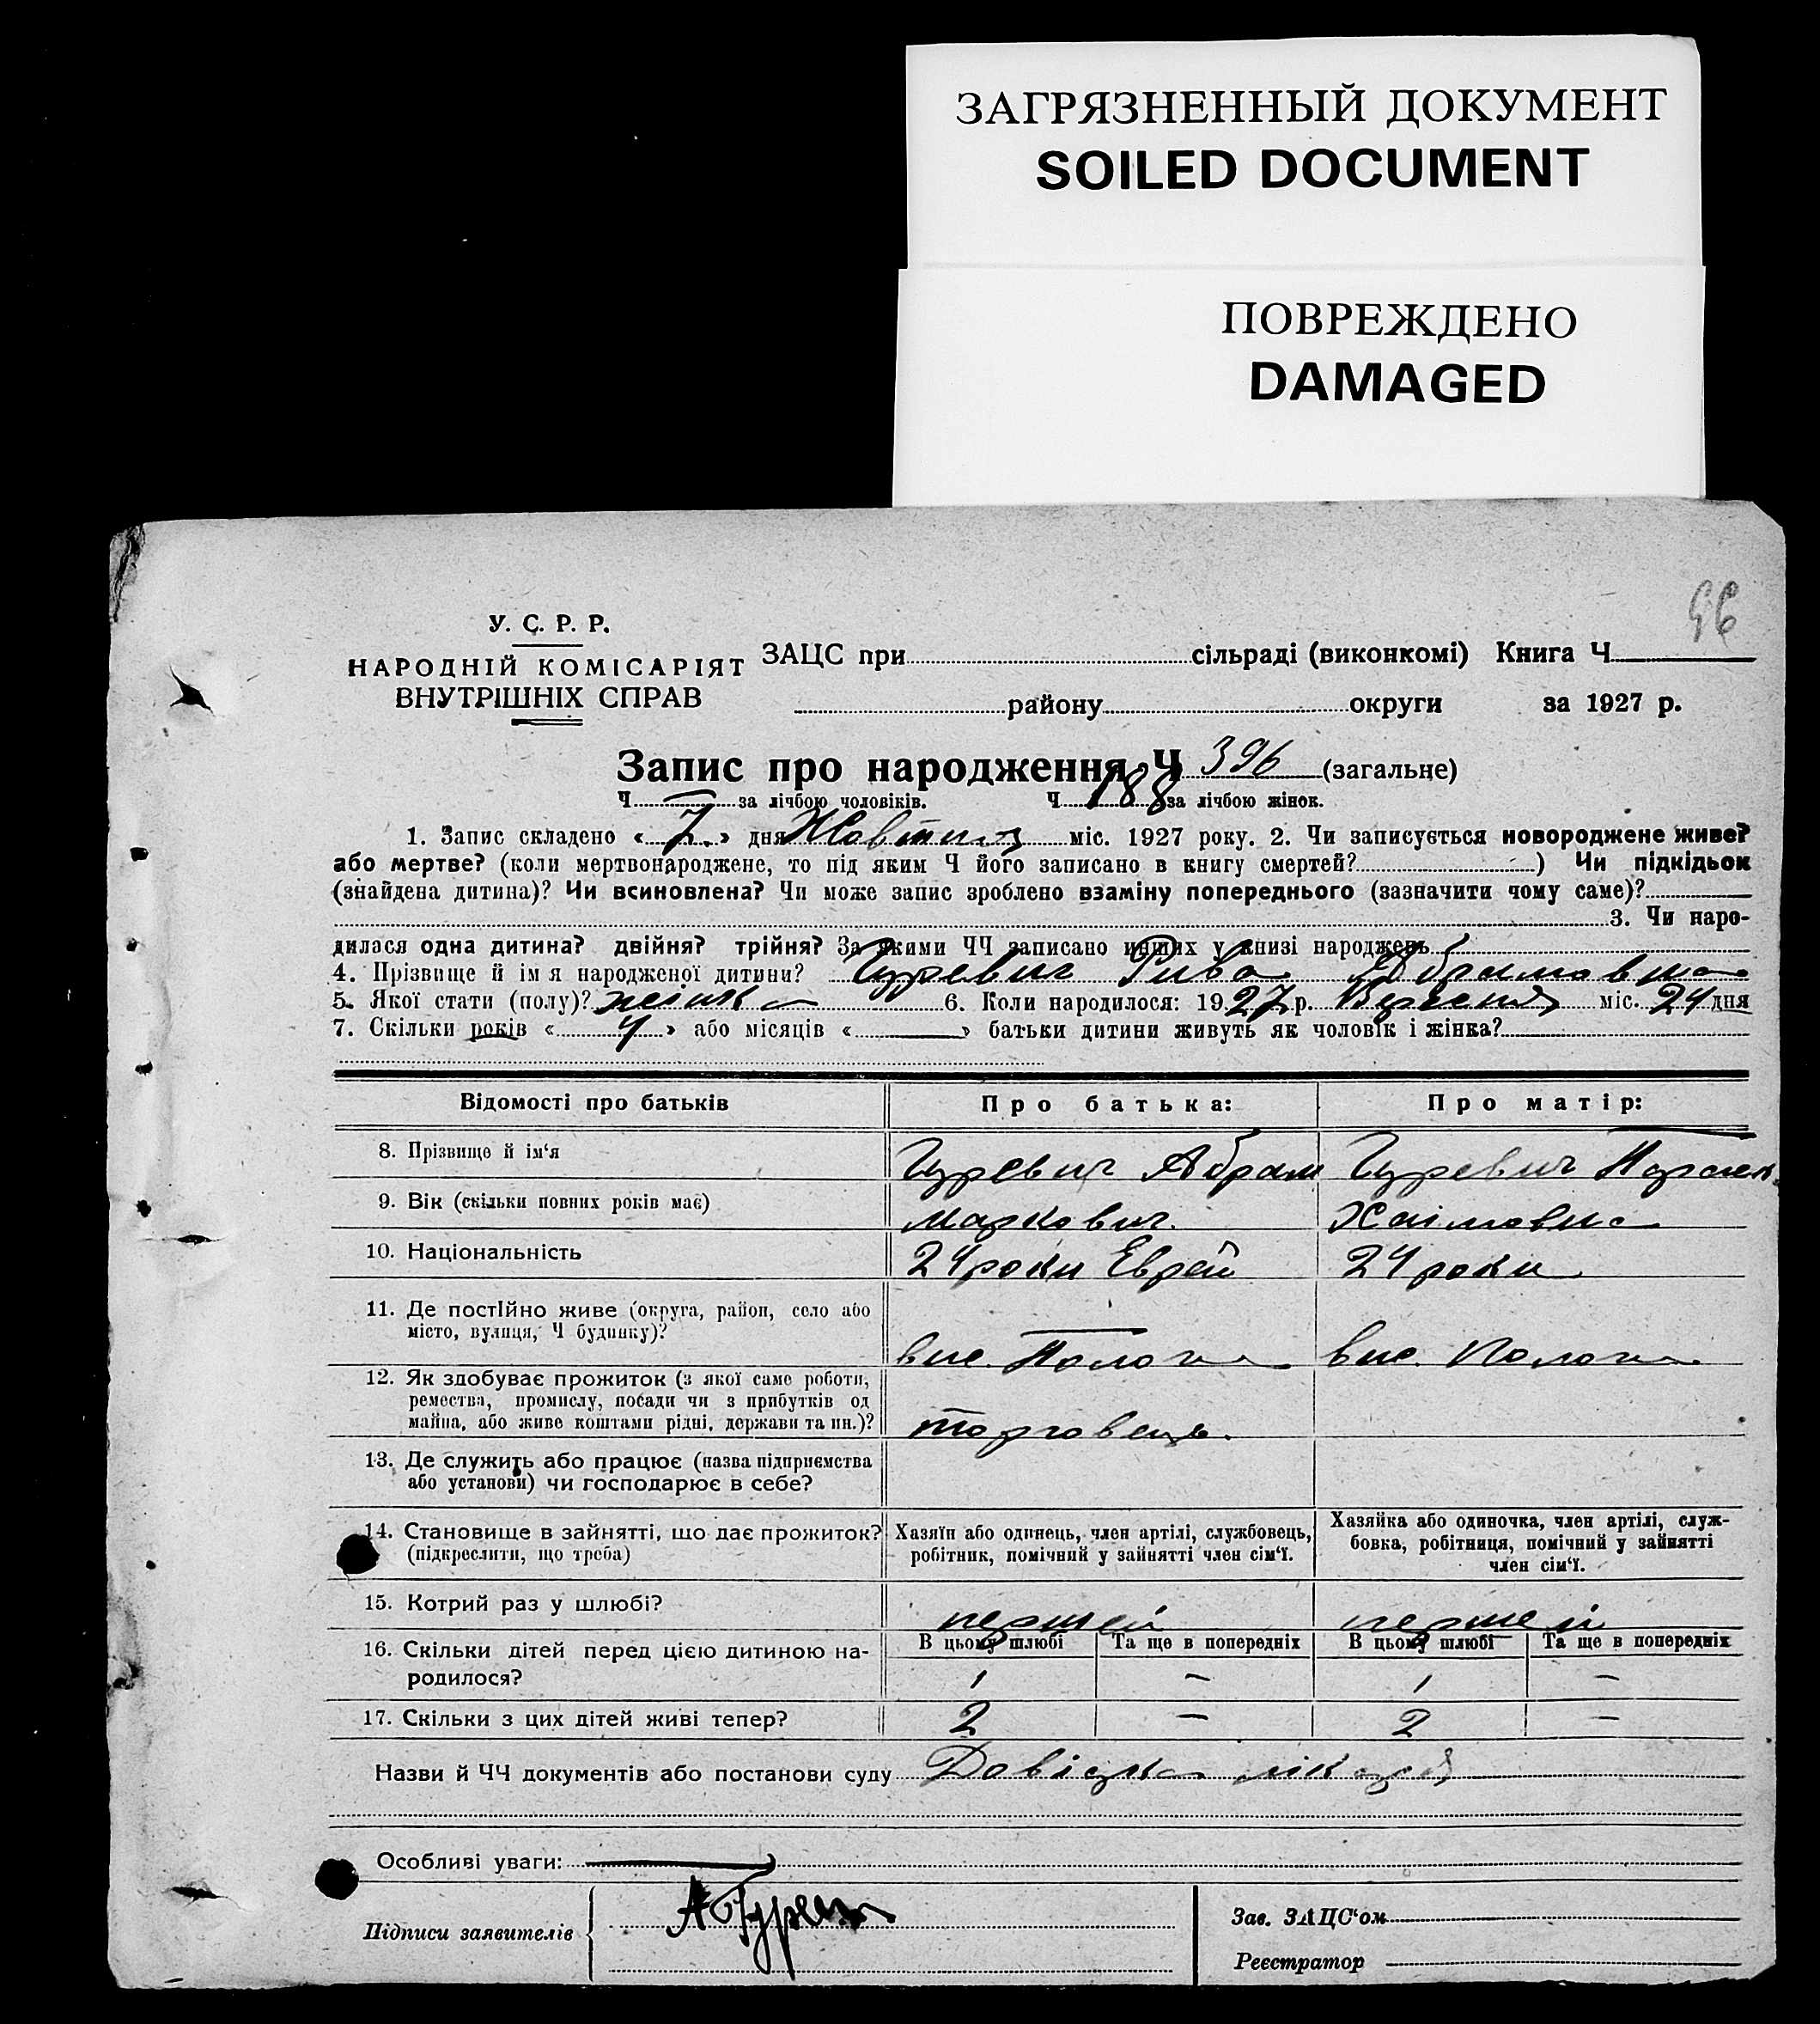 ЗАГРЯЗНЕННЫЙ ДОКУМЕНТ
SOILED DOCUMENT
ПОВРЕЖДЕНО
DAMAGED
96
У. С. Р. Р.
НАРОДНІЙ КОМІСАРІЯТ
ВНУТРІШНІХ СПРАВ
ЗАЦС при сільраді (виконкомі) Книга Ч
району округи за 1927 р.
Запис про народження Ч 396 (загальне)
Ч за лічбою чоловіків. Ч 188 за лічбою жінок.
1. Запис складено « 7 » дня Жовтня міс. 1927 року. 2. Чи записується новороджене живе?
або мертве? (коли мертвонароджене, то під яким Ч його записано в книгу смертей? ) Чи підкідьок
(знайдена дитина)? Чи всиновлена? Чи може запис зроблено взаміну попереднього (зазначити чому саме)?
3. Чи наро-
дилася одна дитина? двійня? трійня? За якими ЧЧ записано инших у книзі народжень
4. Прізвище й ім я народженої дитини? Гуревич Рива Абрамовна
5. Якої стати (полу)? жінка 6. Коли народилося: 1927 р. Вересня міс. 24 дня
7. Скільки років « 4 » або місяців « — » батьки дитини живуть як чоловік і жінка?
Відомості про батьків Про батька: Про матір:
8. Прізвище й ім‘я Гуревич Абрам Гуревич
9. Вік (скільки повних років має) Маркович Хаімовна
10. Національність 24 роки Еврей 24 роки
11. Де постІйно живе (округа, район, село або
місто, вулиця, Ч будинку)? вис. Пологи вис. Пологи
12. Як здобуває прожиток (з якої саме роботи,
ремества, промислу, посади чи з прибутків од
майна, або живе коштами рідні, держави та ин.)? торговець.
13. Де служить або працює (назва підприємства
або установи) чи господарює в себе?
14. Становище в зайнятті, що дає прожиток? Хазяїн або одинець, член артілі, службовець, Хазяйка або одиночка, член артілі, служ-
(підкреслити, що треба) робітник, помічний у зайнятті член сім‘ї. бовка, робітниця, помічний у зайнятті
член сім‘ї.
15. Котрий раз у шлюбі? перший перший
16. Скільки дітей перед цією дитиною на- В цьому шлюбі Та ще в попередніх В цьому шлюбі Та ще в попередніх
родилося? 1 — 1 —
17. Скільки з цих дітей живі тепер? 2 — 2 —
Назви й ЧЧ документів або постанови суду Довідка
Особливі уваги:
Підписи заявителів А Гуревич Зав. ЗАЦС‘ом
Реєстратор